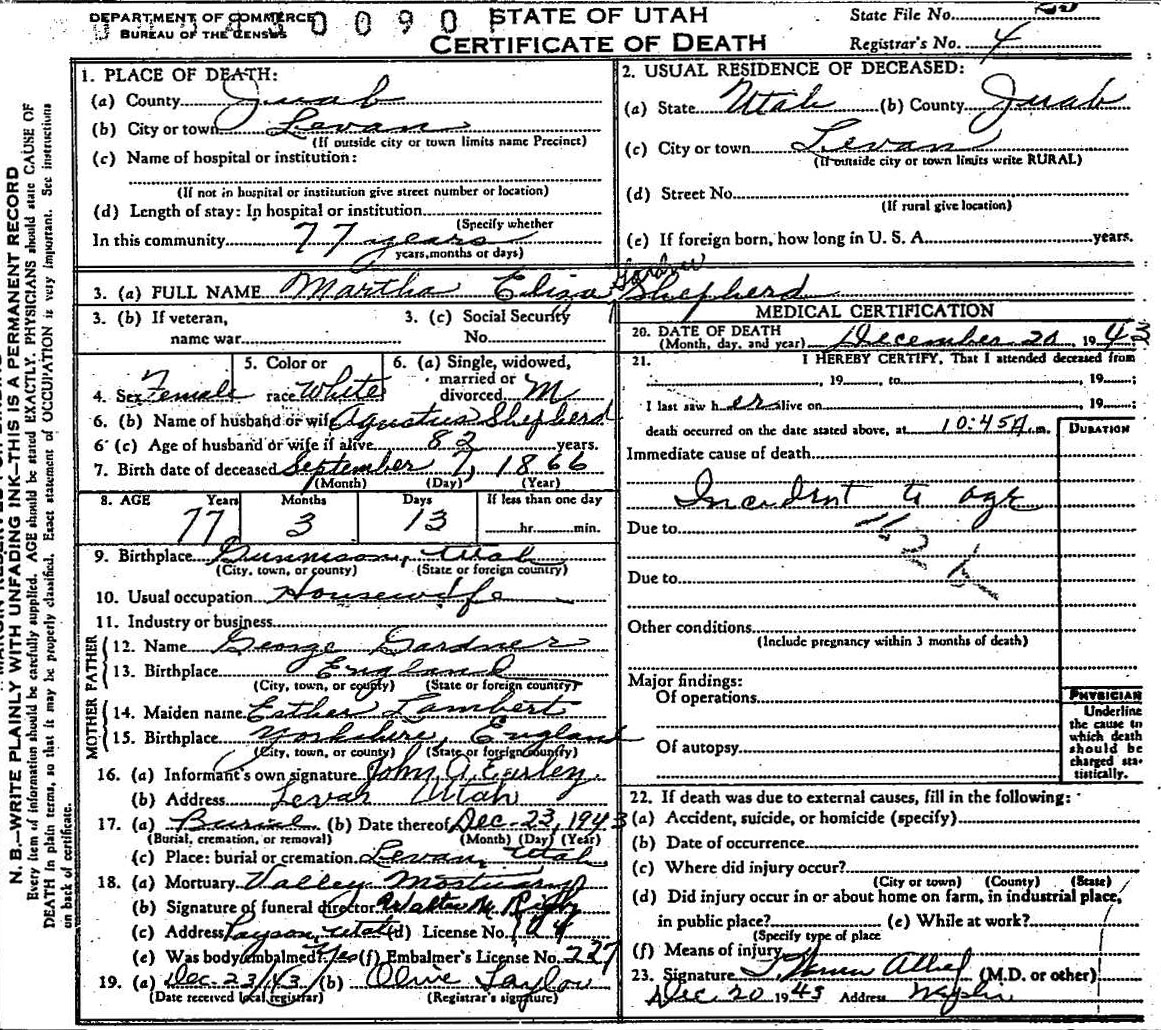 DEPARTMENT OF COMMERCE
BUREAU OF THE CENSUS
0090
STATE OF UTAH
CERTIFICATE OF DEATH
State File No.
Registrar's No. 4
N. B.—WRITE PLAINLY WITH UNFADING INK—THIS IS A PERMANENT RECORD
Every item of information should be carefully supplied. AGE should be stated EXACTLY. PHYSICIANS should state CAUSE OF
DEATH in plain terms, so that it may be properly classified. Exact statement of OCCUPATION is very important. See instructions
on back of certificate.
1. PLACE OF DEATH:
(a) County Juab
(b) City or town Levan
(If outside city or town limits name Precinct)
(c) Name of hospital or institution:
(If not in hospital or institution give street number or location)
(d) Length of stay: In hospital or institution
(Specify whether
In this community 77 years
years, months or days)
2. USUAL RESIDENCE OF DECEASED:
(a) State Utah (b) County Juab
(c) City or town Levan
(If outside city or town limits write RURAL)
(d) Street No.
(If rural give location)
(e) If foreign born, how long in U. S. A. years.
3. (a) FULL NAME Martha Eliza Gardner Shepherd
3. (b) If veteran, 3. (c) Social Security
name war No.
4. Sex Female 5. Color or race White 6. (a) Single, widowed, married or divorced M
6. (b) Name of husband or wife Agustus Shepherd
6 (c) Age of husband or wife if alive 82 years.
7. Birth date of deceased September 7, 1866
(Month) (Day) (Year)
8. AGE Years Months Days If less than one day
77 3 13 hr. min.
9. Birthplace Gunnison, Utah
(City, town, or county) (State or foreign country)
10. Usual occupation Housewife
11. Industry or business
FATHER
12. Name George Gardner
13. Birthplace England
(City, town, or county) (State or foreign country)
MOTHER
14. Maiden name Esther Lambert
15. Birthplace Yorkshire, England
(City, town, or county) (State or foreign country)
16. (a) Informant's own signature John A. Earley
(b) Address Levan Utah
17. (a) Burial (b) Date thereof Dec-23, 1943
(Burial, cremation, or removal) (Month) (Day) (Year)
(c) Place: burial or cremation Levan, Utah
18. (a) Mortuary Valley Mostuary
(b) Signature of funeral director Walter M.
(c) Address Payson, Utah (d) License No. 124
(e) Was body embalmed? Yes (f) Embalmer's License No. 227
19. (a) Dec-23/43/ (b) Olive Taylor
(Date received local registrar) (Registrar's signature)
MEDICAL CERTIFICATION
20. DATE OF DEATH
(Month, day, and year) December 20, 1943
21. I HEREBY CERTIFY, That I attended deceased from
, 19 , to , 19 ;
I last saw her alive on , 19 ;
death occurred on the date stated above, at 10:45A.m.
DURATION
Immediate cause of death
Incident to age
Due to
Due to
Other conditions
(Include pregnancy within 3 months of death)
Major findings:
Of operations
Of autopsy
PHYSICIAN
Underline
the cause to
which death
should be
charged sta-
tistically.
22. If death was due to external causes, fill in the following:
(a) Accident, suicide, or homicide (specify)
(b) Date of occurrence
(c) Where did injury occur?
(City or town) (County) (State)
(d) Did injury occur in or about home on farm, in industrial place,
in public place? (e) While at work?
(Specify type of place
(f) Means of injury
23. Signature (M.D. or other)
Dec 20 1943 Address